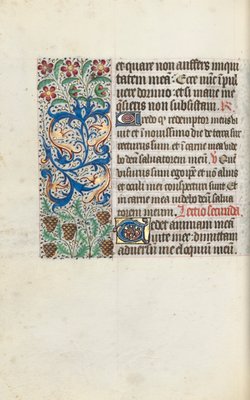 et quare non auffers iniqui
tatem meā: Ecce nūc ī pul
uere dormio: et si mane me
quesieris non subsistam. R
Credo q̄ redemptor meus vi
uit et ī nouissimo die de terra sur
recturus sum et ī carne mea vide
bo deū saluatorem meū. V Quē
visurus sum ego ip̄e et nō alius
et oculi mei conspecturi sunt Et
in carne mea videbo deū salua
torem meum. Lectio secunda.
Tedet animam meā
vite mee: dimittam
aduersū me eloquiū meū.